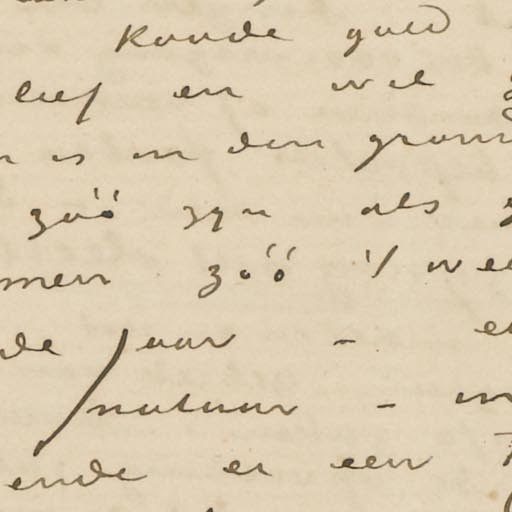 Konde goed
lief en wel
is in den grond
zóó zyn als
men zóó 't wee
de jaar - e
natuur - in
ende er een